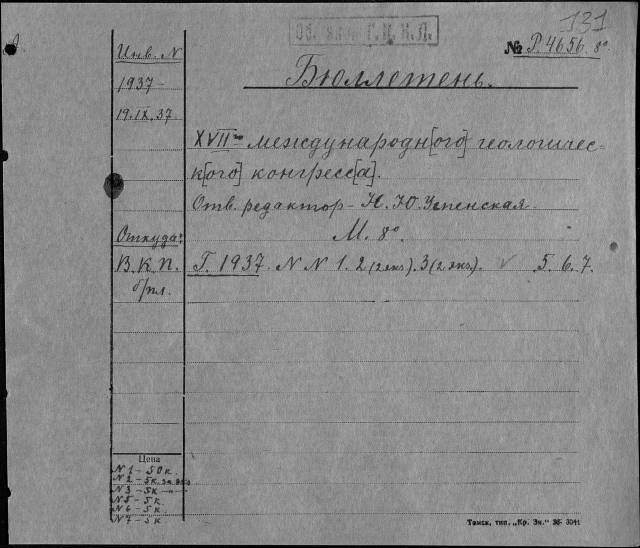 131
№ Р. 4656. 8°
Бюллетень.
Инв. N
1937 -
19.IX.37.
XVII-го международн[ого] геологичес-
к[ого] конгресс[а].
Отв. редактор - Н. Ю. Успенская.
М. 8°
Откуда:
В.К.П.
Г. 1937. N N 1. 2 (2 экз.). 3 (2 экз.). 5. 6. 7.
Цена
N 1 - 50 к.
N 2 - 5 к.
N 3 - 5 к
N 5 - 5 к
N 6 - 5 к
N 7 - 5 к
Томск, тип. „Кр. Зн."